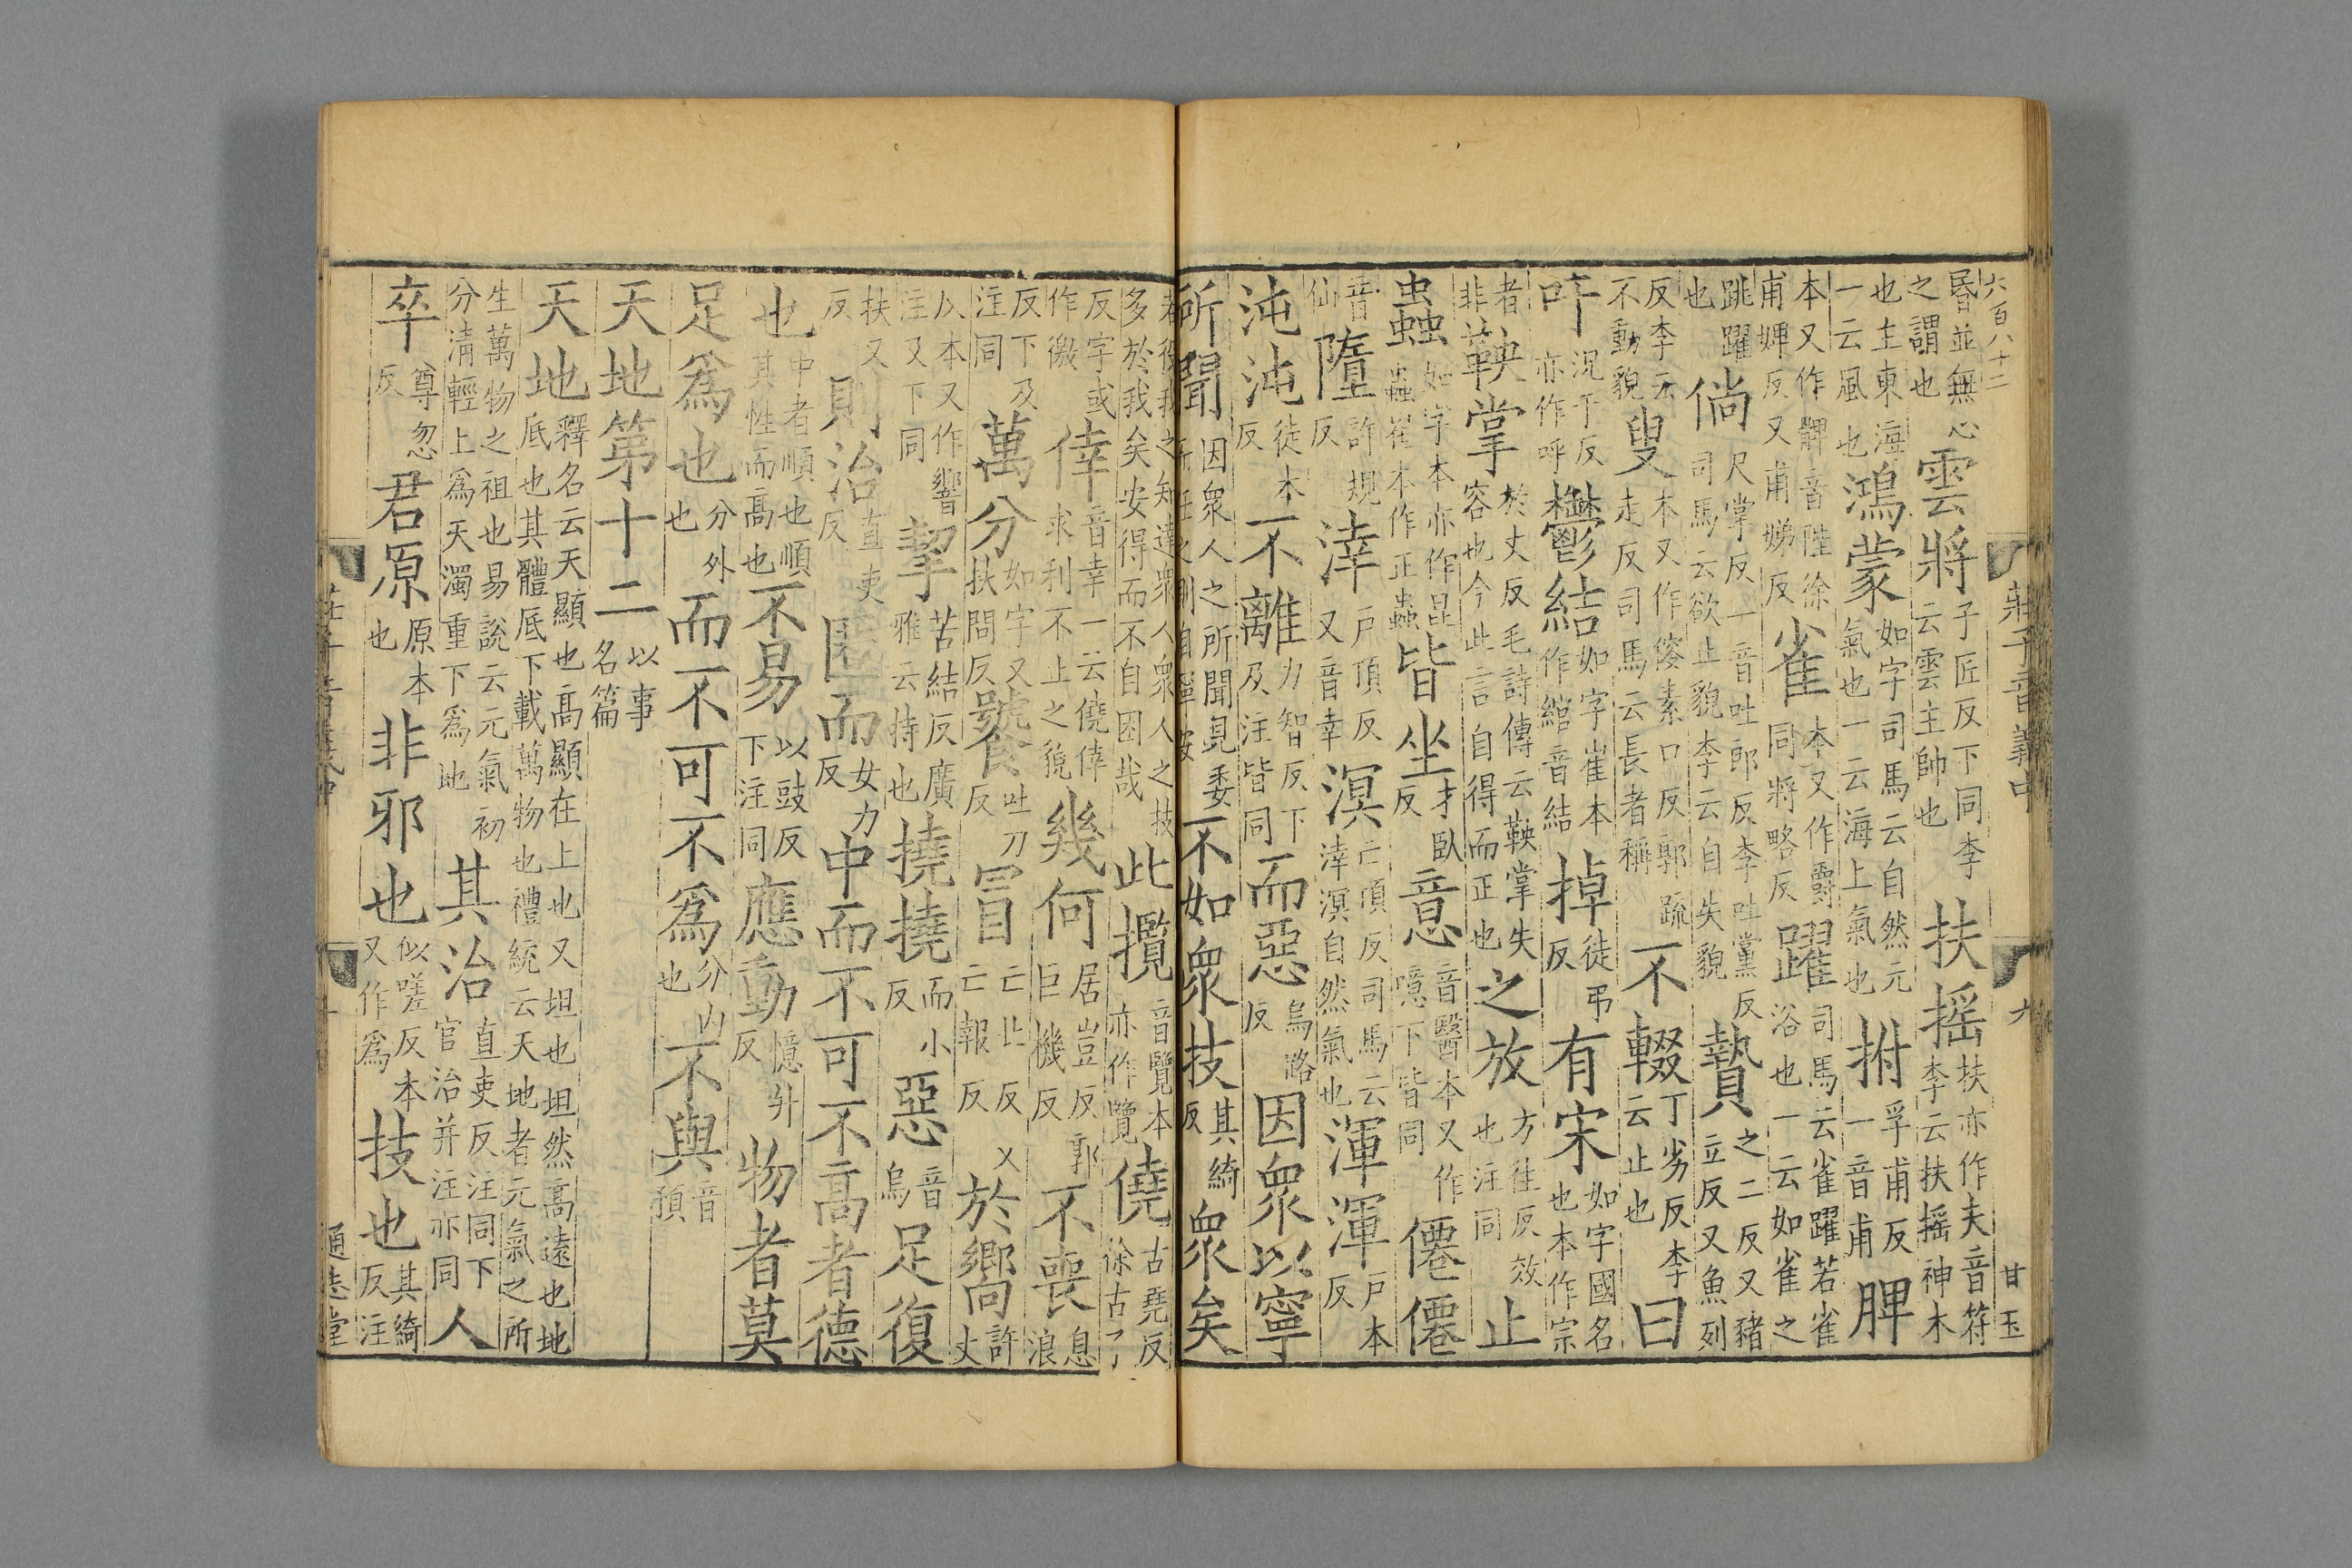 六百八十二
莊子音義中　九　甘玉
昬並無心之謂也 雲將 子匠反下同李云雲主帥也 扶搖 扶亦作夫音符李云扶搖神木
也主東海一云風也 鴻蒙 如字司馬云自然元氣也一云海上氣也 拊 孚甫反一音甫 脾
本又作髀音陛徐甫婢反又甫娣反 雀 本又作爵同將略反 躍 司馬云雀躍若雀浴也一云如雀之
跳躍也 倘 尺掌反一音吐郎反李吐黨反司馬云欲止貌李云自失貌 贄 之二反又豬立反又魚列
反李云不動貌 叟 本又作傁素口反郭疏走反司馬云長者稱 不輟 丁劣反李云止也 曰
吁 況于反亦作呼 鬱結 如字崔本作綰音結 掉 徒弔反 有宋 如字國名也本作宗
者非 鞅掌 於丈反毛詩傳云鞅掌失容也今此言自得而正也 之放 方往反效也注同 止
蟲 如字本亦作昆蟲崔本作正蟲 皆坐 才臥反 意 音醫本又作噫下皆同 僊僊
音仙 墮 許規反 涬 戶頂反又音幸 溟 亡頂反司馬云涬溟自然氣也 渾渾 戶本反
沌沌 徒本反 不離 力智反下及注皆同 而惡 烏路反 因衆以寧
所聞 因衆人之所聞見委而任之則自寧安 不如衆技 其綺反 衆矣
若役我之知達衆人衆人之技多於我矣安得而不自困哉 此攬 音覽本亦作覽 僥 古堯反徐古了
反字或作徼 倖 音幸一云僥倖求利不止之貌 幾何 居豈反郭巨機反 不喪 息浪
反下及注同 萬分 如字又扶問反 饕 吐刀反 冒 亡北反又亡報反 於嚮 許丈
反本又作響注又下同 挈 苦結反廣雅云持也 撓撓 而小反 惡 音烏 足復
扶又反 則治 直吏反 匿而 女力反 中而不可不高者德
也 中者順也順其性而高也 不易 以豉反下注同 應動 憶升反 物者莫
足爲也 分外也 而不可不爲 分內也 不與 音預
天地第十二 以事名篇
天地 釋名云天顯也高顯在上也又坦也坦然高遠也地底也其體底下載萬物也禮統云天地者元氣之所
生萬物之祖也易說云元氣初分清輕上爲天濁重下爲地 其治 直吏反注同下官治并注亦同 人
卒 尊忽反 君原 原本也 非邪也 似嗟反本又作爲 技也 其綺反注
莊子音義中　通志堂